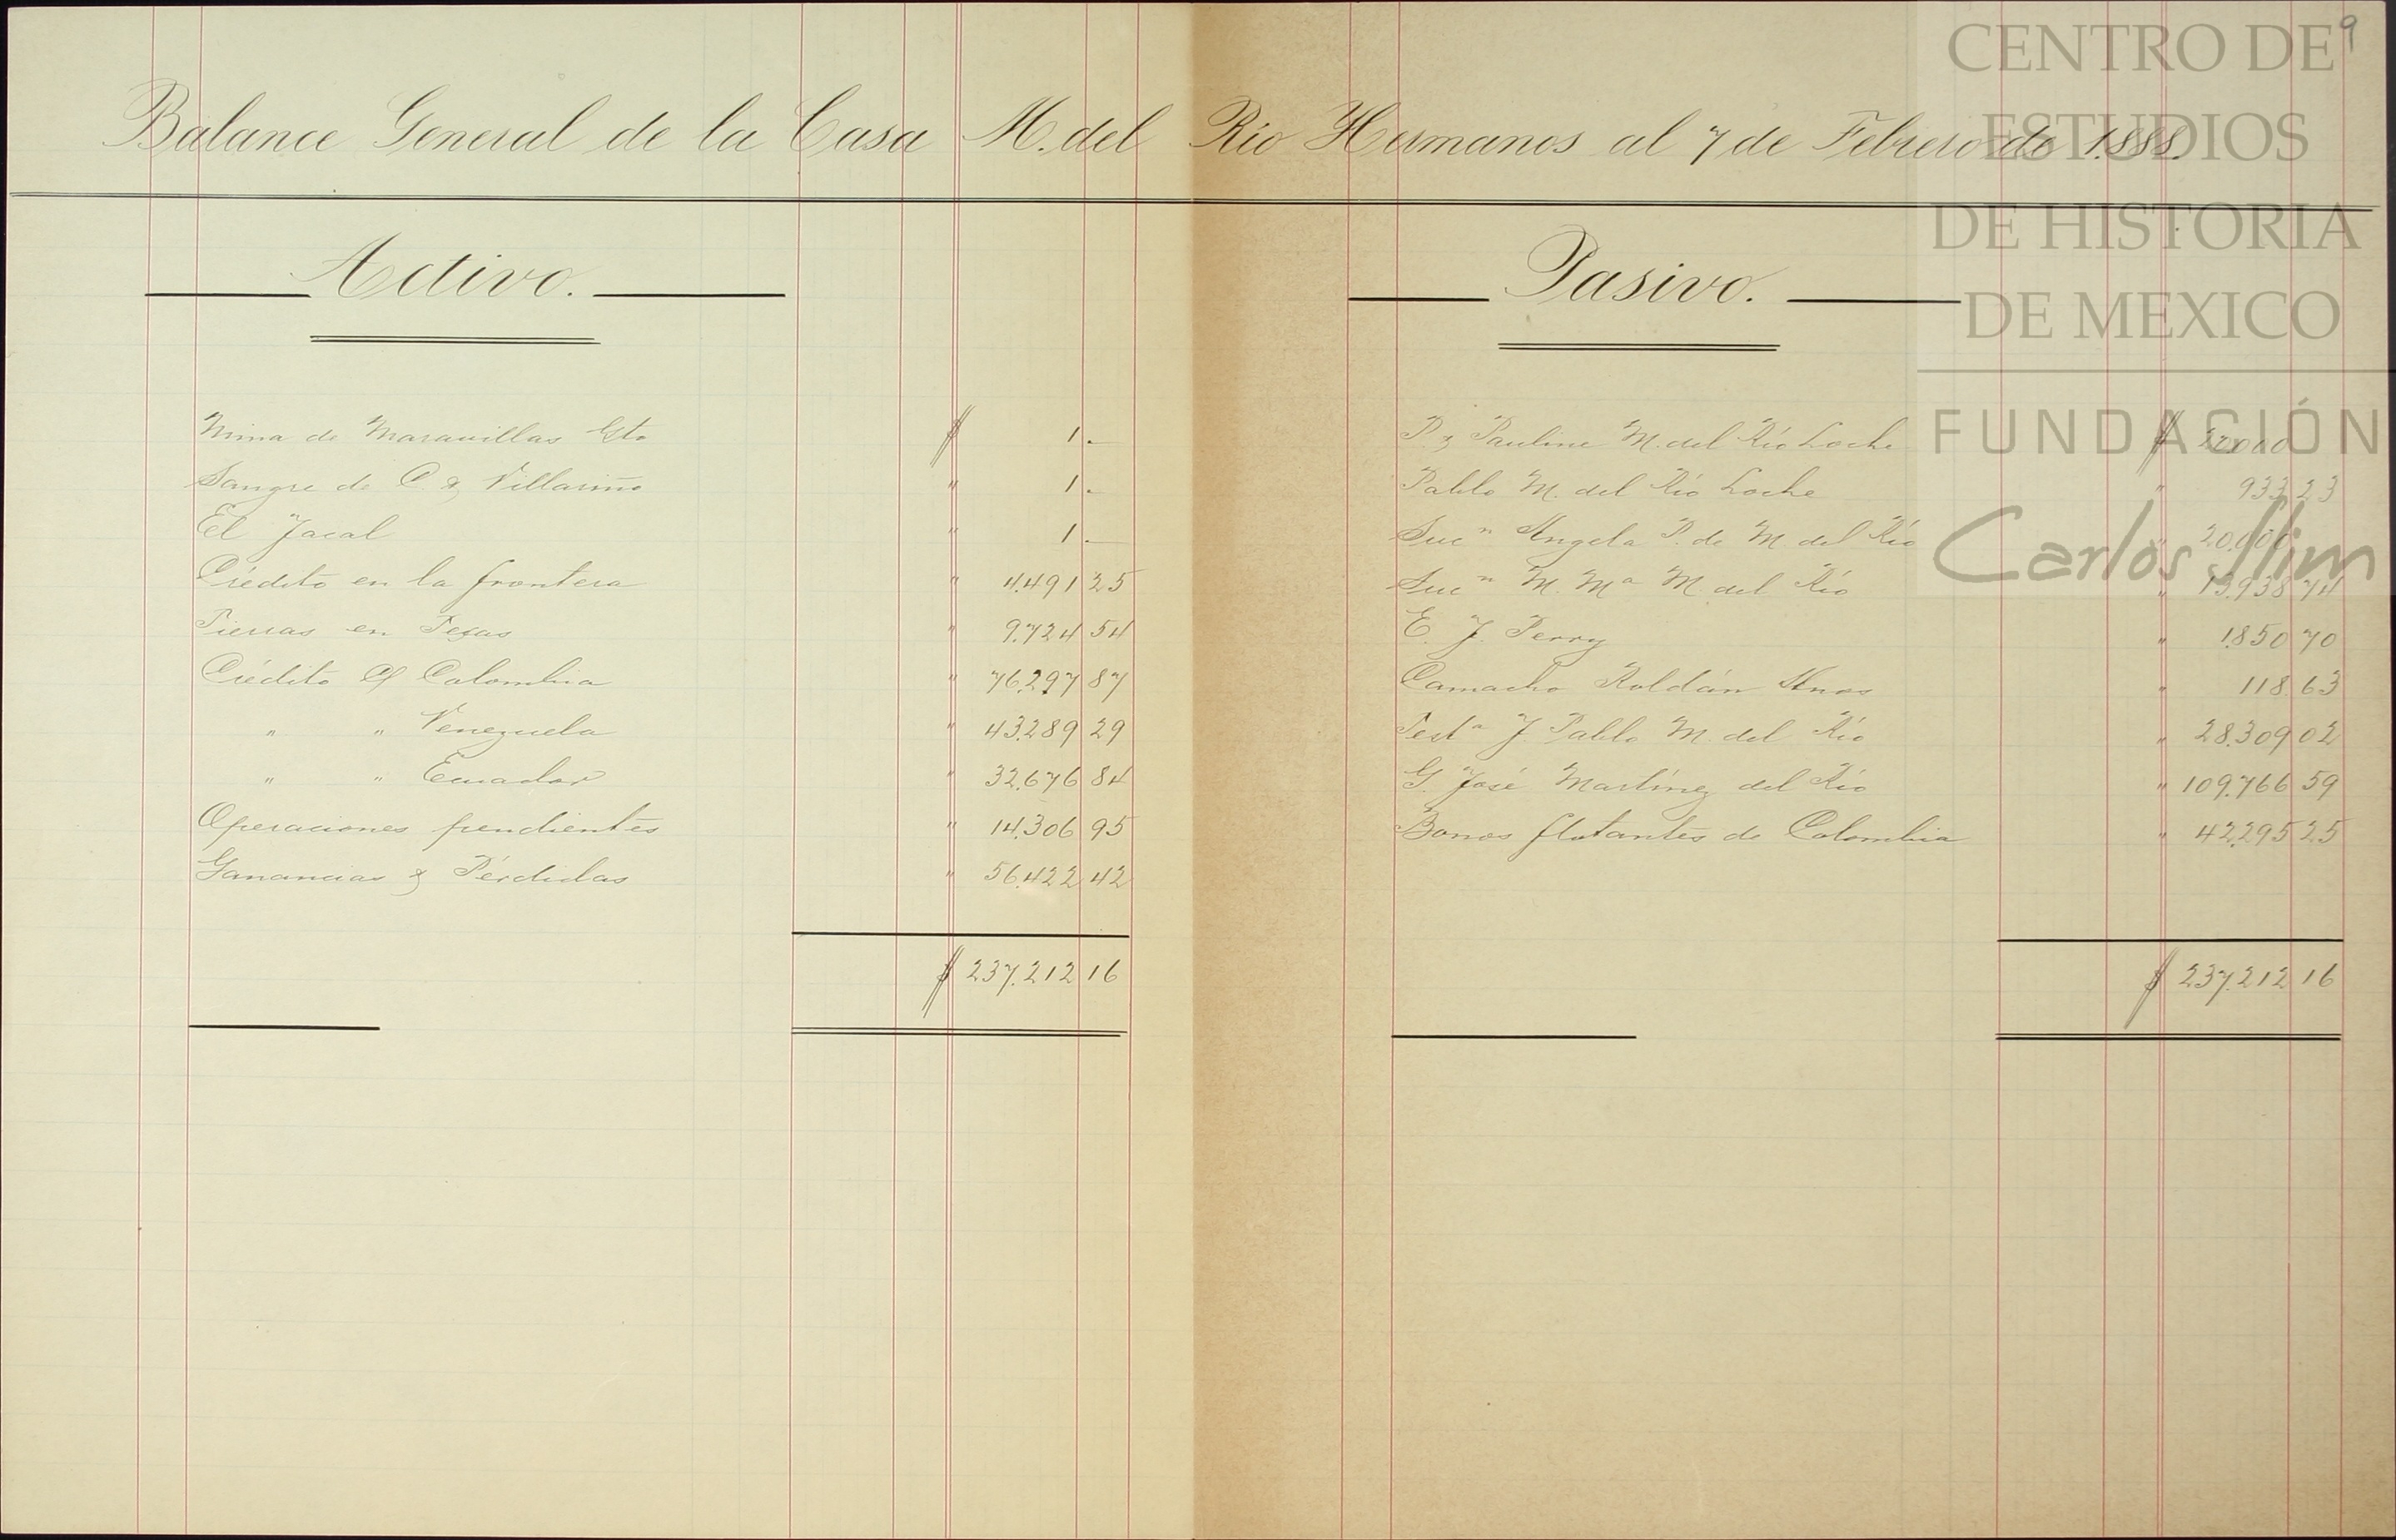 9
Balance General de la Casa M. del Río Hermanos al 7 de Febrero de 1.888.
Activo.
Mina de Maravillas Gto $ 1.—
Sangre de C. & Villariño " 1.—
El Jacal " 1.—
Crédito en la frontera " 4.491 25
Tierras en Tejas " 9.724 54
Crédito C/ Colombia " 76.297 87
" " Venezuela " 43.289 29
" " Ecuador " 32.676 84
Operaciones pendientes " 14.306 95
Ganancias y Pérdidas " 56.422 42
$ 237.212 16
Pasivo.
P. y Pauline M. del Río Loche $ 20.000
Pablo M. del Río Loche " 933 23
Sucn Angela P. de M. del Río " 20.000
Sucn M. Ma M. del Río " 13.938 74
E. J. Perry " 1.850 70
Camacho Roldán Hnos " 118 63
Testa J. Pablo M. del Río " 28.309 02
G. José Martínez del Río " 109.766 59
Bonos flotantes de Colombia " 42.295 25
$ 237.212 16
CENTRO DE
ESTUDIOS
DE HISTORIA
DE MEXICO
FUNDACIÓN
Carlos Slim